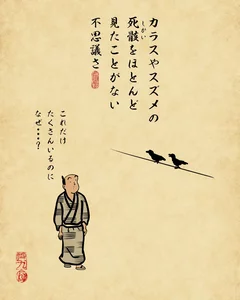 カラスやスズメの
死骸をほとんど
しがい
見たことがない
不思議さ
これだけ
たくさんいるのに
なぜ・・・?